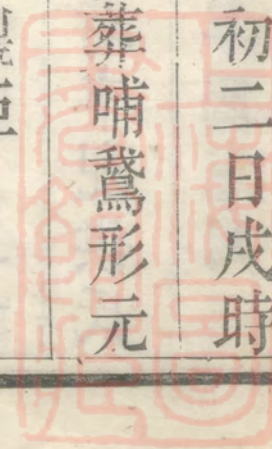 初二日戌時
葬哺鵞形元